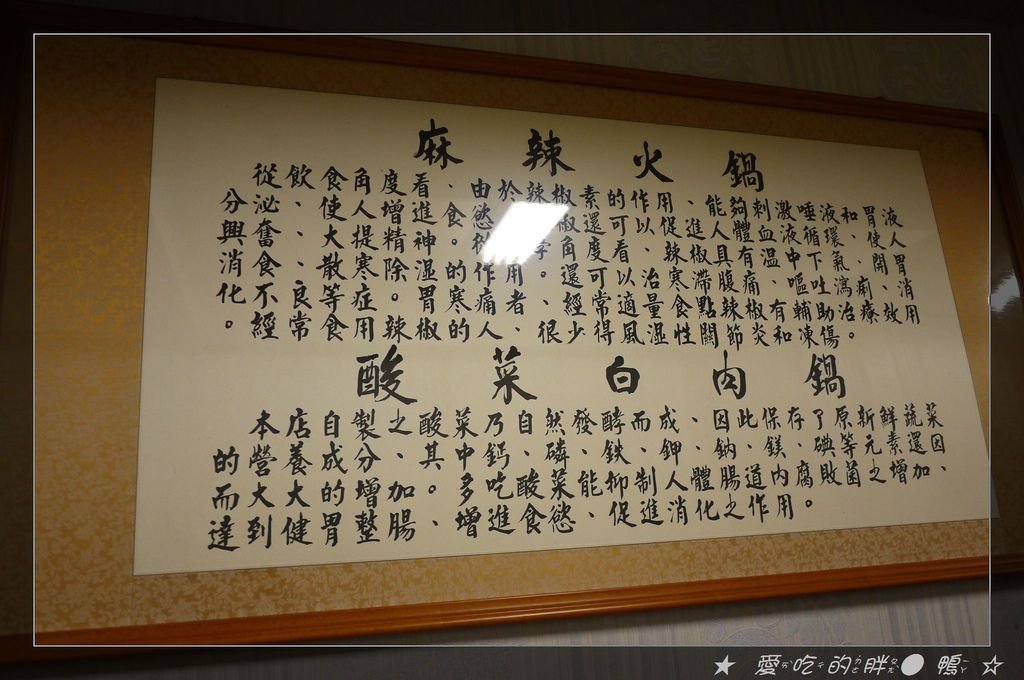 麻辣火鍋
從飲食角度看、由於辣椒素的作用、能夠刺激唾液和胃液
分泌、使人增進食慾。椒還可以促進人體血液循環、使人
興奮、大提精神。從學角度看、辣椒具有温中下氣、開胃
消食、散寒除湿的作用。還可以治寒滯腹痛、嘔吐瀉痢、消
化不良等症。胃寒痛者、經常適量食點辣椒、有輔助治療效用
。經常食用辣椒的人、很少得風湿性關節炎和凍傷。
酸菜白肉鍋
本店自製之酸菜乃自然發酵而成、因此保存了原新鮮蔬菜
的營養成分、其中鈣、磷、鐵、鉀、鈉、鎂、碘等元素還因
而大大的增加。多吃酸菜能抑制人體腸道內腐敗菌之增加、
達到健胃整腸、增進食慾、促進消化之作用。
★ 愛吃的胖● 鴨 ☆